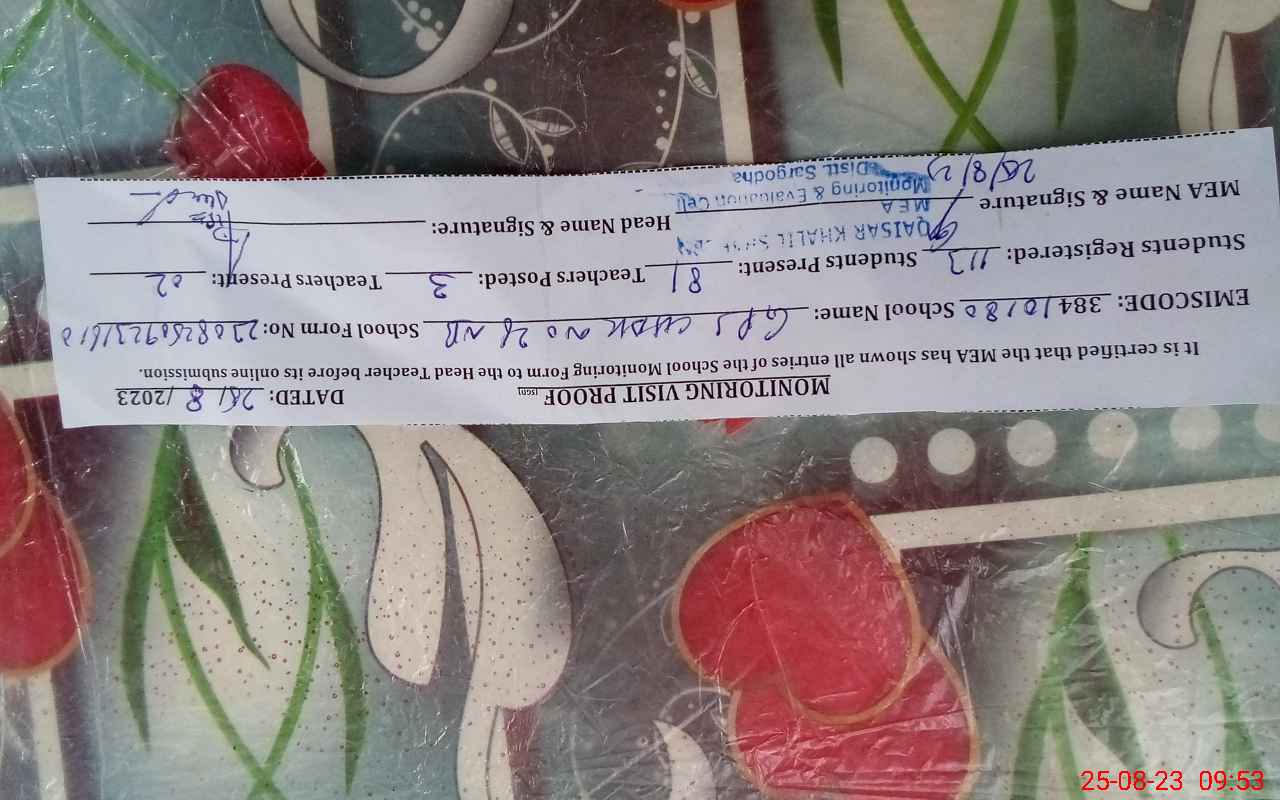 MONITORING VISIT PROOF DATED: 25/8/2023
It is certified that the MEA has shown all entries of the School Monitoring Form to the Head Teacher before its online submission.
EMISCODE: 38410180 School Name: GPS CHAK NO 26 NB School Form No:
Students Registered: 113 Students Present: 81 Teachers Posted: 3 Teachers Present: 02
MEA Name & Signature Head Name & Signature:
25/8/23
QAISAR KHALIL
MEA
Monitoring & Evaluation Cell
Distt. Sargodha
25-08-23 09:53